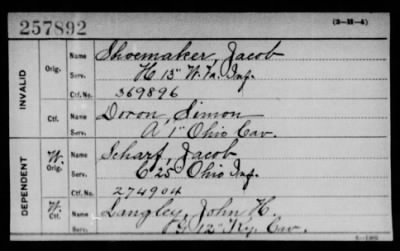 257892
(3-II-4)
INVALID
Orig.
Name Shoemaker, Jacob
Serv. H 15" W.Va. Inf.
Ctf. No. 369896
Ctf.
Name Doron, Simon
Serv. A 1" Ohio Cav.
DEPENDENT
W. Orig.
Name Scharf, Jacob
Serv. C 25" Ohio Inf.
Ctf. No. 274904
W. Ctf.
Name Langley, John H.
Serv. 12" Ky. Cav.